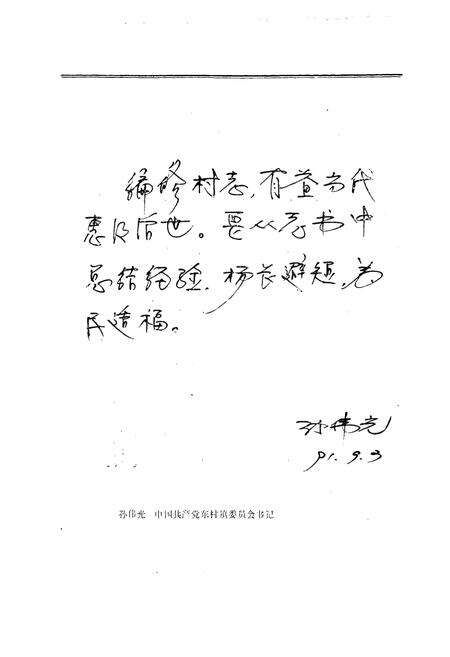 编修村志，有益当代
惠及后世。要从志书中
总结经验，杨长避短，为
民造福。
孙伟光
91.9.3
孙伟光 中国共产党东村镇委员会书记